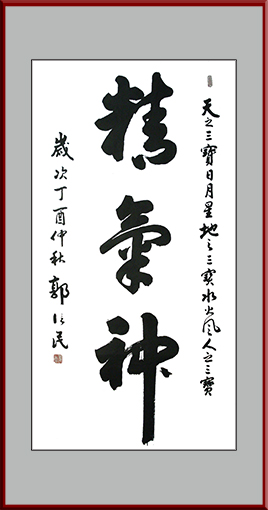 天之三寶日月星地之三寶水火風人之三寶
精氣神
歲次丁酉仲秋 郭 民